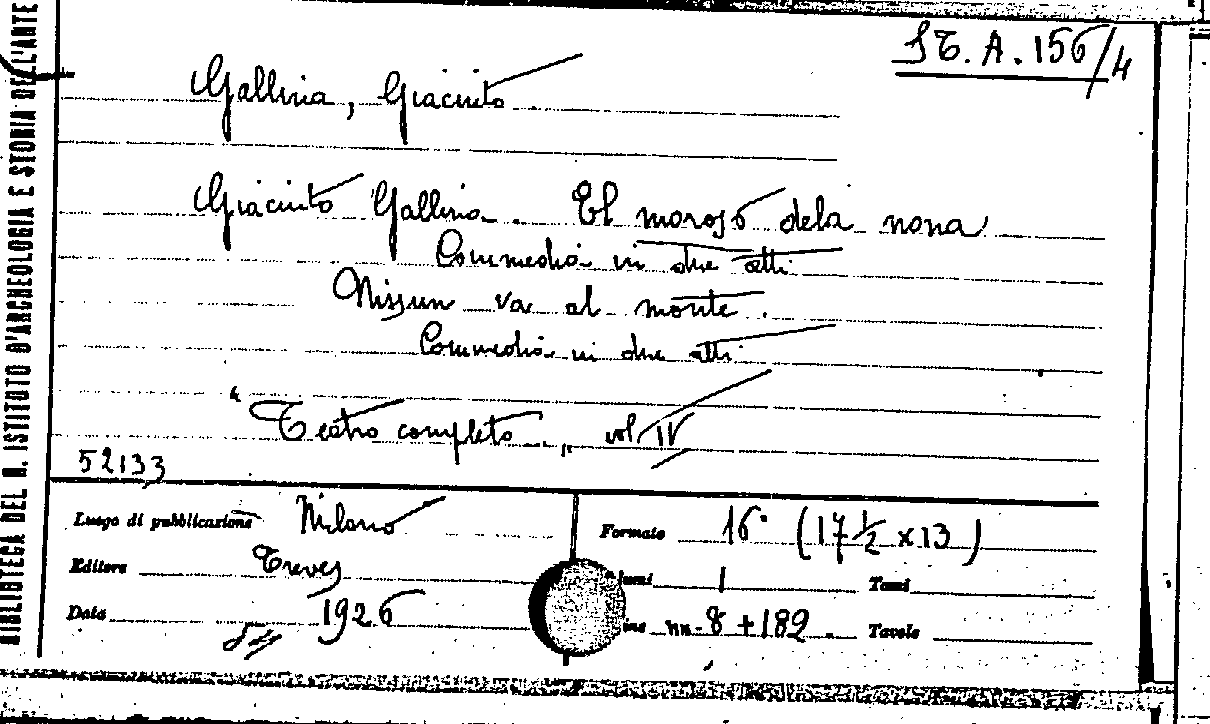 ST. A. 156/4
Gallina, Giacinto
Giacinto Gallina. El moroso dela nona
Commedia in due atti
Nissun va al monte.
Commedia in due atti
"Teatro completo", vol IV
52133
Luogo di pubblicazione Milano
Editore Treves
Data 1926
Formato 16° (17 ½ x 13)
1 Tomi
nn. 8 + 189. Tavole
BIBLIOTECA DEL R. ISTITUTO D'ARCHEOLOGIA E STORIA DELL'ARTE